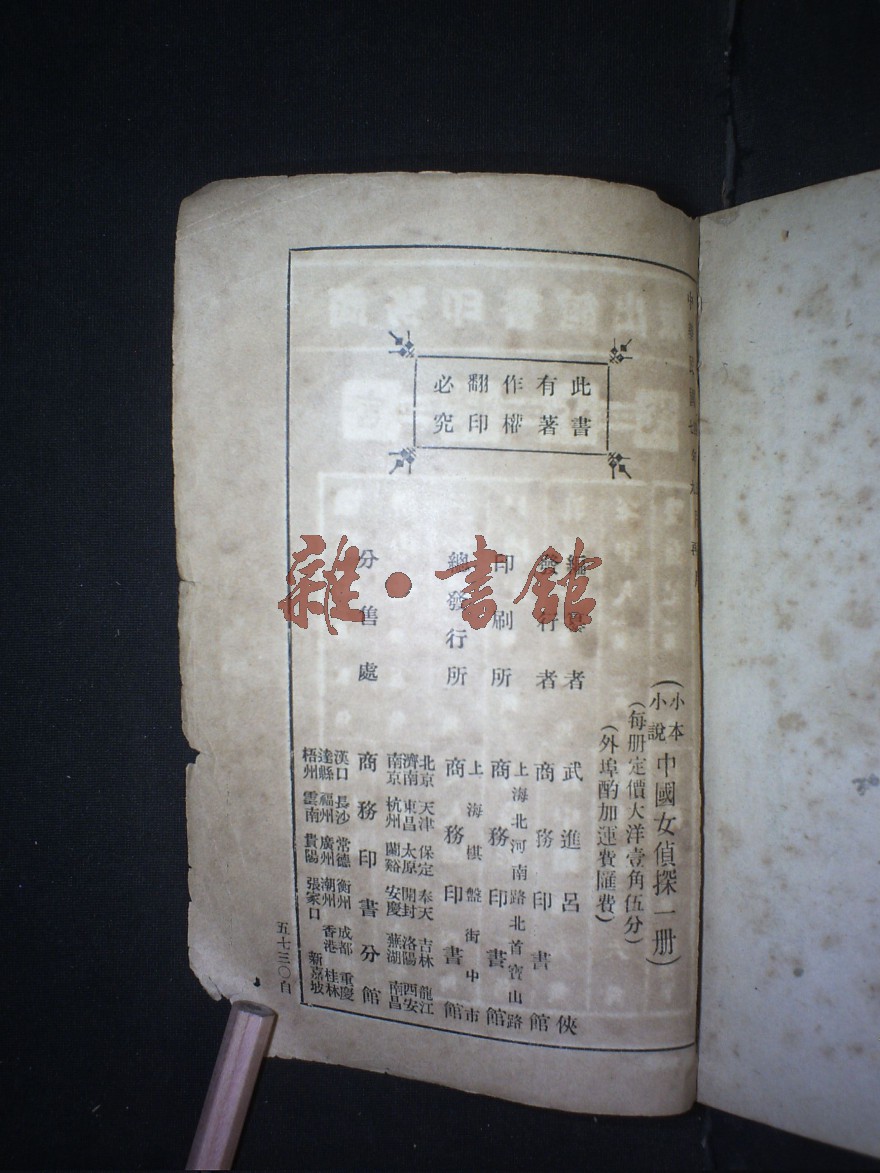 此書
有著
作權
翻印
必究
小本小說
中國女偵探一册
(每册定價大洋壹角伍分)
(外埠酌加運費匯費)
編纂者 武進呂俠
發行者 商務印書館
印刷所 上海北河南路北首寶山路 商務印書館
總發行所 上海棋盤街中市 商務印書館
分售處 商務印書分館
北京 天津 保定 奉天 吉林 龍江
濟南 東昌 太原 開封 洛陽 西安
南京 杭州 蘭谿 安慶 蕪湖 南昌
漢口 長沙 常德 衡州 成都 重慶
達縣 福州 廣州 潮州 香港 桂林
梧州 雲南 貴陽 張家口 新嘉坡
五七三〇自
雜·書館